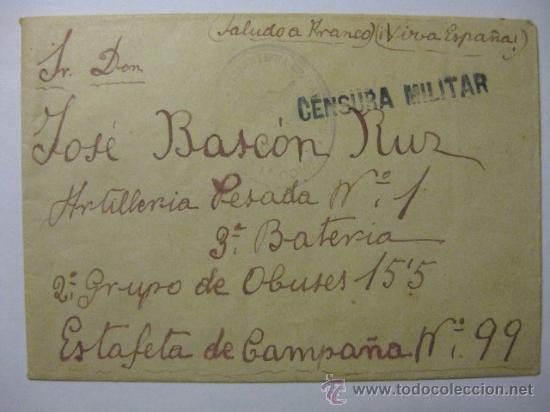 (Saludo a Franco) (¡Viva España!)
Sr. Don
CENSURA MILITAR
José Bascón Ruz
Artilleria Pesada Nº 1
3ª Bateria
2º Grupo de Obuses 15'5
Estafeta de Campaña Nº 99
todocoleccion
www.todocoleccion.net